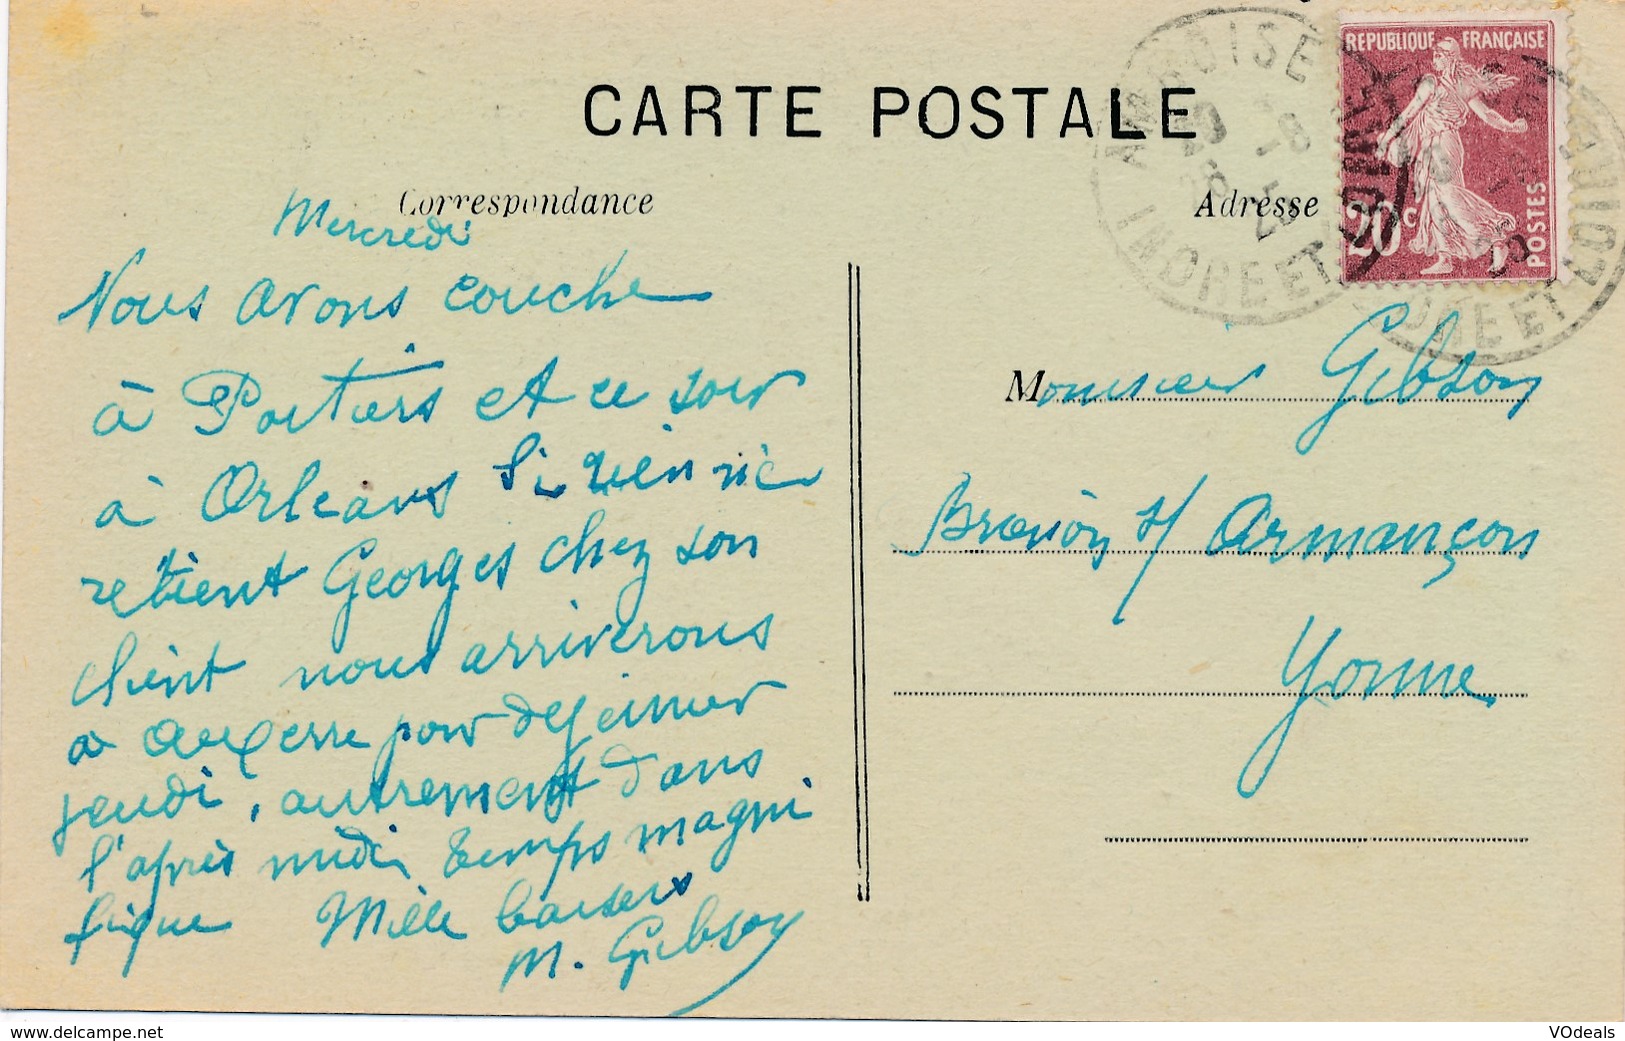 CARTE POSTALE
Correspondance
Adresse
REPUBLIQUE FRANÇAISE
20c
POSTES
AMBOISE
20 -8
25
INDRE ET LOIRE
Mercredi
Nous avons couche
à Poitiers et ce soir
à Orleans Si rien ne
retient Georges chez son
client nous arriverons
a Auxerre pour dejeuner
jeudi, autrement dans
l'après midi temps magni
fique Mille baisers
M. Gibson
Monsieur Gibson
Brienon s/ Armançon
Yonne
www.delcampe.net
VOdeals